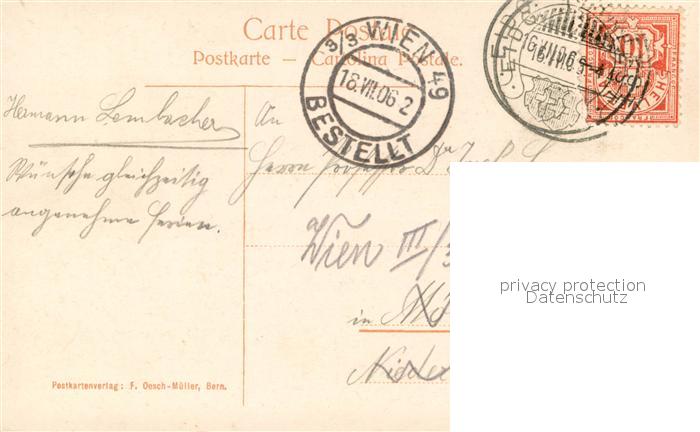 Carte Postale
Postkarte — Cartolina Postale.
3/3 WIEN 49
18.VII.06 2
BESTELLT
16.VII.06
10
HEL
Hermann Lembacher
Wünsche gleichzeitig
angenehme Ferien.
An
Herrn Professor Dr
Wien III/3
in
Postkartenverlag: F. Oesch-Müller, Bern.
privacy protection
Datenschutz